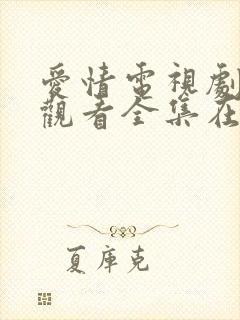 愛情電視劇
觀看全集在
夏庫克